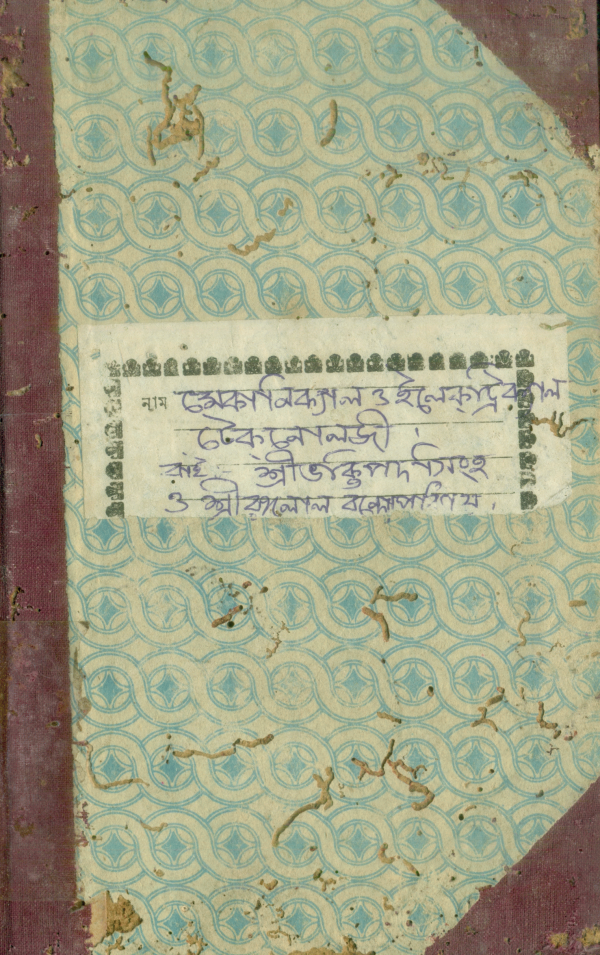 নাম মেকানিক্যাল ও ইলেকট্রিক্যাল
টেকনোলজী।
শ্রীভক্তিপদ সিংহ
ও শ্রীকল্লোল বন্দ্যোপাধ্যায়।